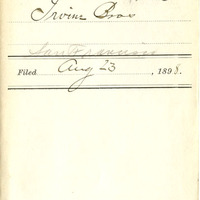 Irvine Bros
San Francisco
Filed Aug 23, 1898.